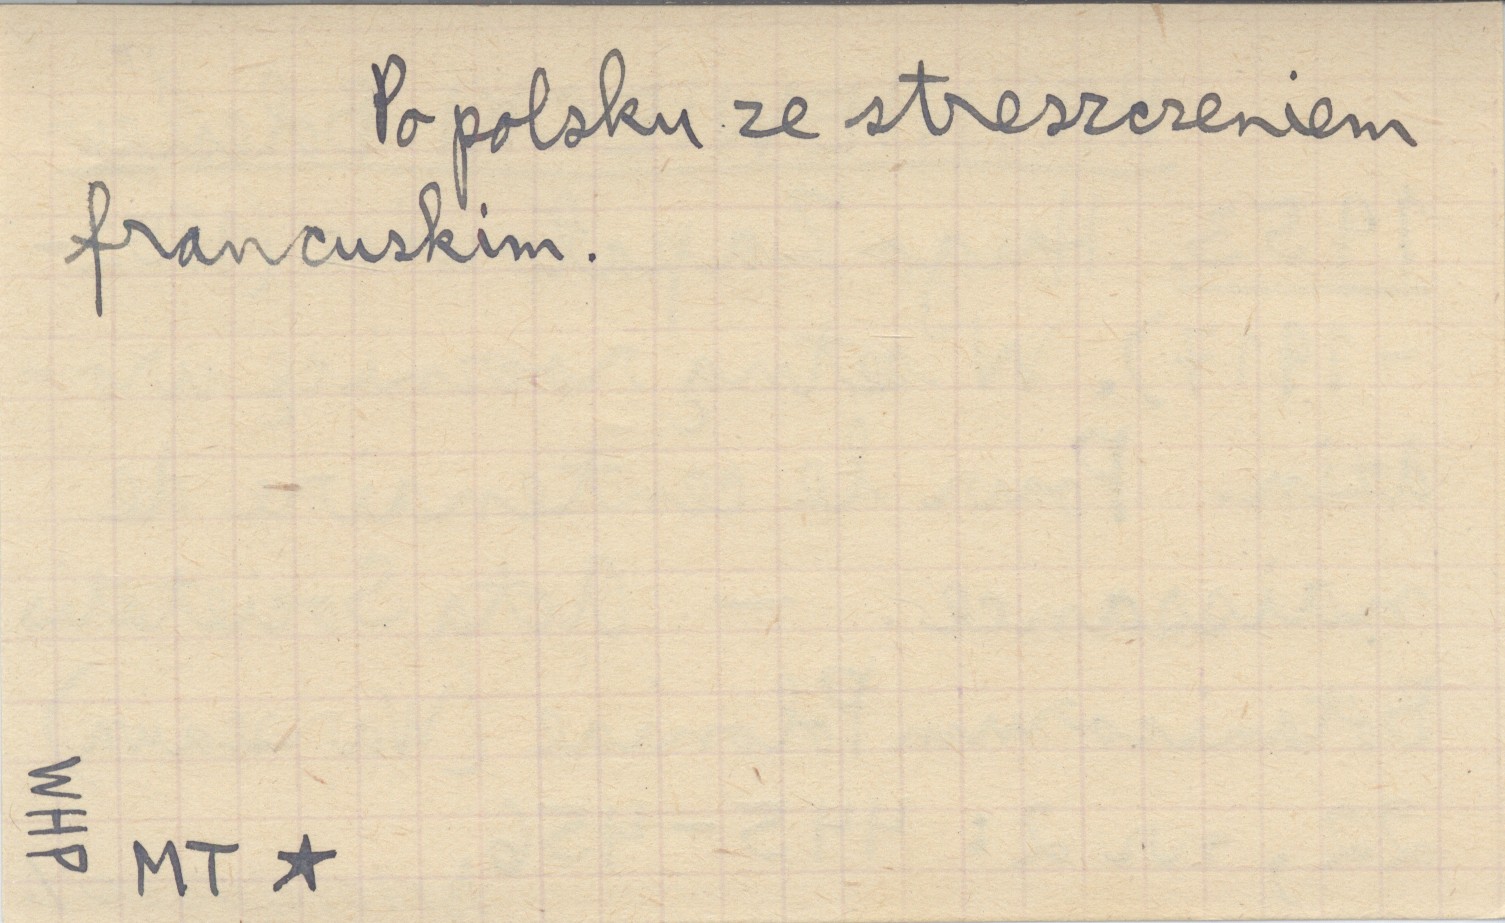 Po polsku ze streszczeniem
francuskim.
WHP
MT ★